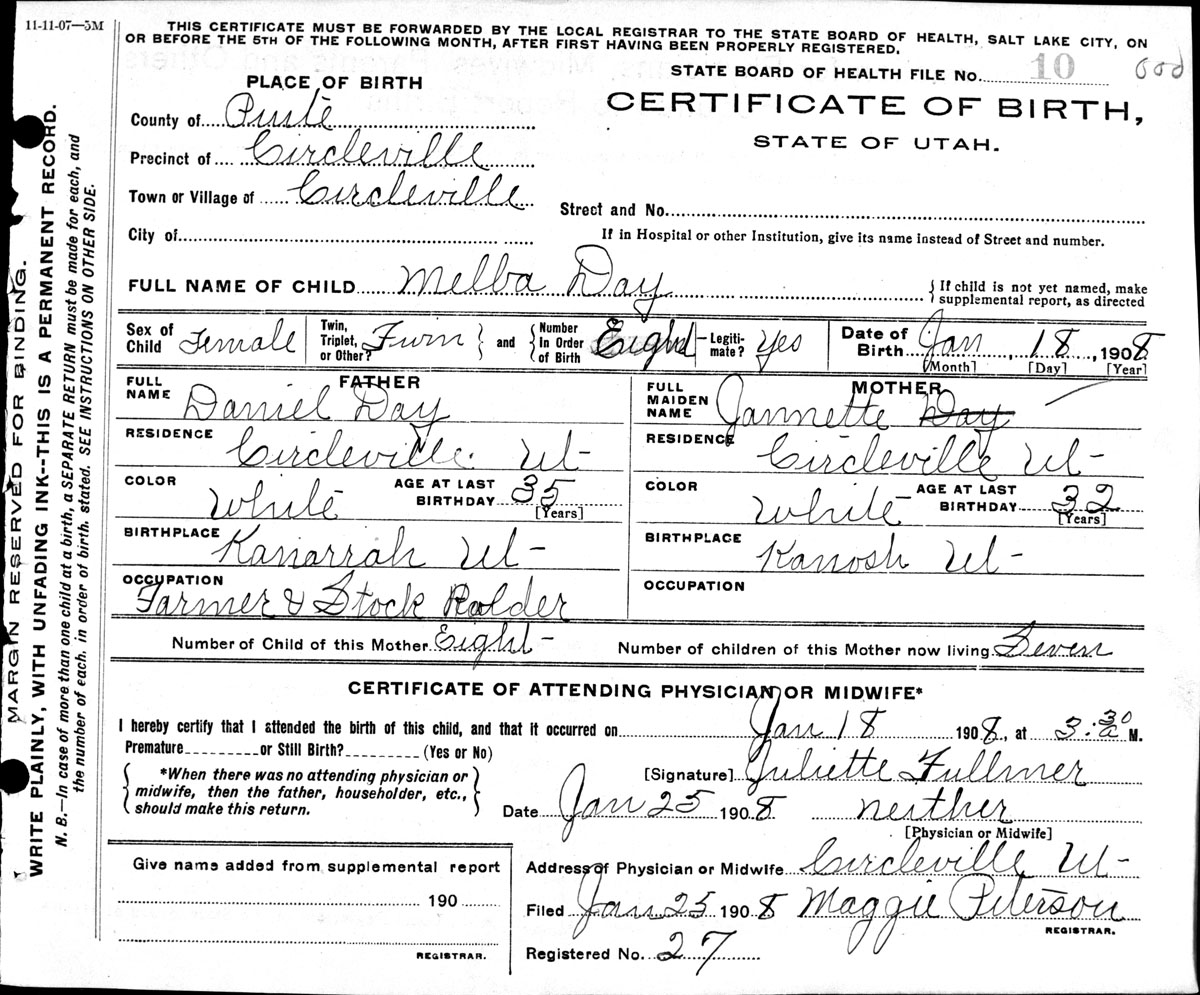 11-11-07—5M
THIS CERTIFICATE MUST BE FORWARDED BY THE LOCAL REGISTRAR TO THE STATE BOARD OF HEALTH, SALT LAKE CITY, ON
OR BEFORE THE 5TH OF THE FOLLOWING MONTH, AFTER FIRST HAVING BEEN PROPERLY REGISTERED.
STATE BOARD OF HEALTH FILE No. 10
PLACE OF BIRTH
CERTIFICATE OF BIRTH,
STATE OF UTAH.
County of Piute
Precinct of Circleville
Town or Village of Circleville
Street and No.
City of
If in Hospital or other Institution, give its name instead of Street and number.
FULL NAME OF CHILD Melba Day
{ If child is not yet named, make
supplemental report, as directed
Sex of Child Female
Twin, Triplet, or Other? Twin } and { Number In Order of Birth Eight
Legitimate? Yes
Date of Birth Jan, 18, 1908
[Month] [Day] [Year]
FATHER
FULL NAME Daniel Day
RESIDENCE Circleville Ut-
COLOR White AGE AT LAST BIRTHDAY 35
[Years]
BIRTHPLACE Kanarrah Ut-
OCCUPATION
Farmer & Stock Raiser
MOTHER
FULL MAIDEN NAME Jannette Day
RESIDENCE Circleville Ut-
COLOR White AGE AT LAST BIRTHDAY 32
[Years]
BIRTHPLACE Kanosh Ut-
OCCUPATION
Number of Child of this Mother Eight- Number of children of this Mother now living Seven
CERTIFICATE OF ATTENDING PHYSICIAN OR MIDWIFE*
I hereby certify that I attended the birth of this child, and that it occurred on Jan 18 1908, at 3:30 a M.
Premature or Still Birth? (Yes or No)
{ *When there was no attending physician or
midwife, then the father, householder, etc.,
should make this return. }
[Signature] Juliette Fullmer
Date Jan 25 1908 neither
[Physician or Midwife]
Give name added from supplemental report
190
REGISTRAR.
Address of Physician or Midwife Circleville Ut-
Filed Jan 25 1908 Maggie Peterson
REGISTRAR.
Registered No. 27
MARGIN RESERVED FOR BINDING.
WRITE PLAINLY, WITH UNFADING INK--THIS IS A PERMANENT RECORD.
N. B.—In case of more than one child at a birth, a SEPARATE RETURN must be made for each, and
the number of each, in order of birth, stated. SEE INSTRUCTIONS ON OTHER SIDE.